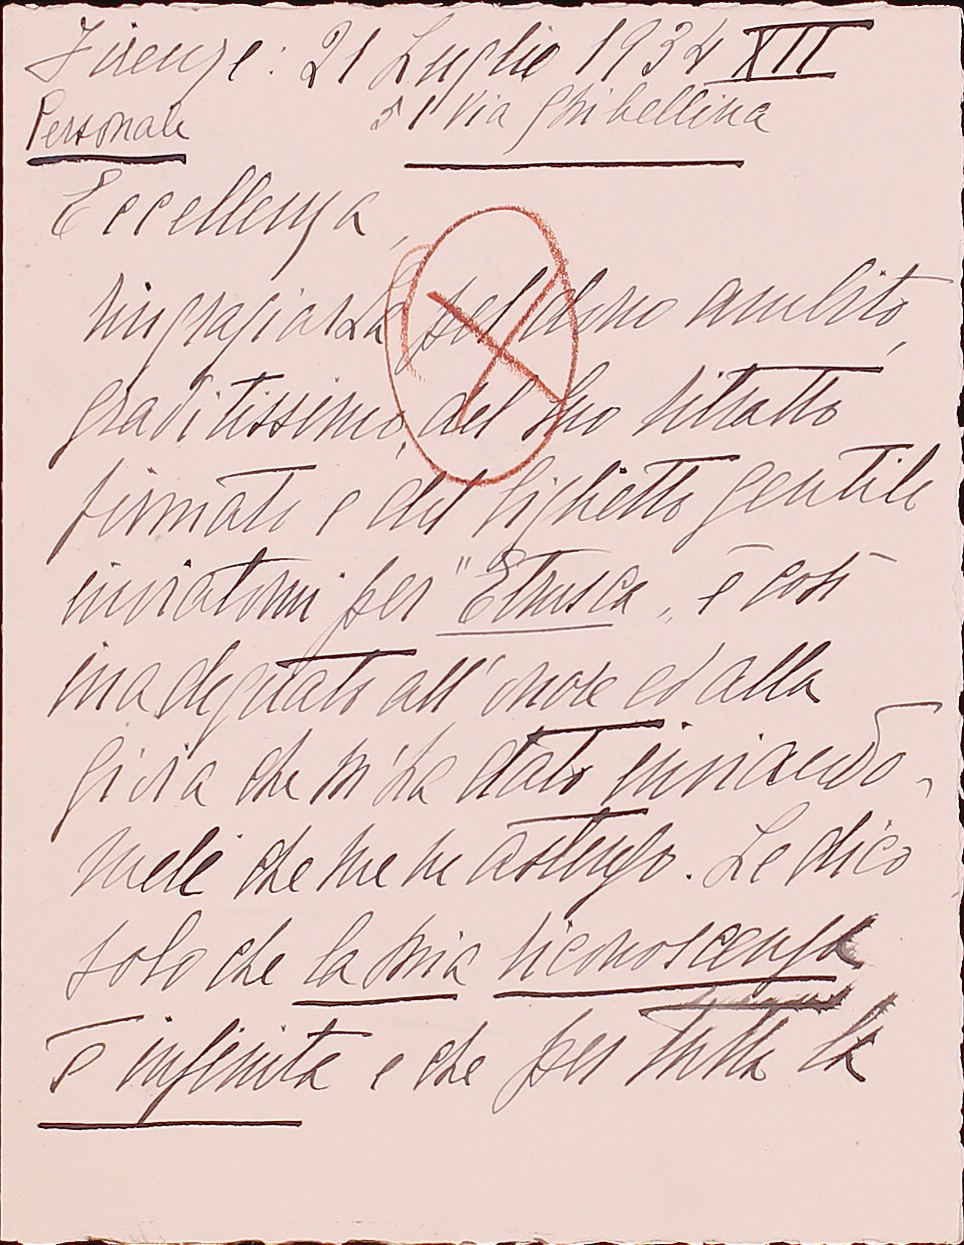 Firenze: 21 Luglio 1934 XII
Personale 51 Via Ghibellina
Eccellenza,
ringraziarLa del dono ambito,
graditissimo, del Suo ritratto
firmato e del biglietto gentile
inviatomi per "Etrusca" è così
inadeguato all'onore ed alla
gioia che m'ha dato inviando-
mele che me ne astengo. Le dico
solo che la mia riconoscenza
è infinita e che per tutta la